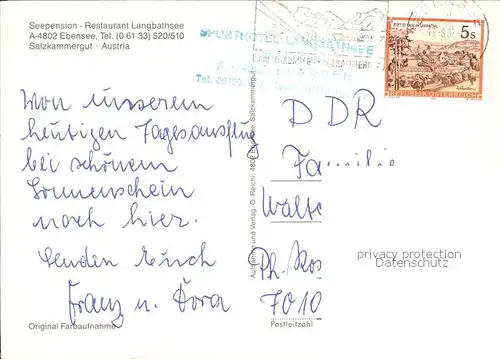 Seepension - Restaurant Langbathsee
A-4802 Ebensee, Tel. (0 61 33) 520/510
Salzkammergut - Austria
SPORTHOTEL LANGBATHSEE
5s
REPUBLIK ÖSTERREICH
Von unserem
heutigen Tagesausflug
bei schönem
Sonnenschein
noch hier.
Senden Euch
Franz u. Dora
Original Farbaufnahme
Aufnahme und Verlag: O. Reichl, 4802 Ebensee, Salzkammergut
DDR
Familie
Ph.
7010
Postleitzahl
privacy protection
Datenschutz